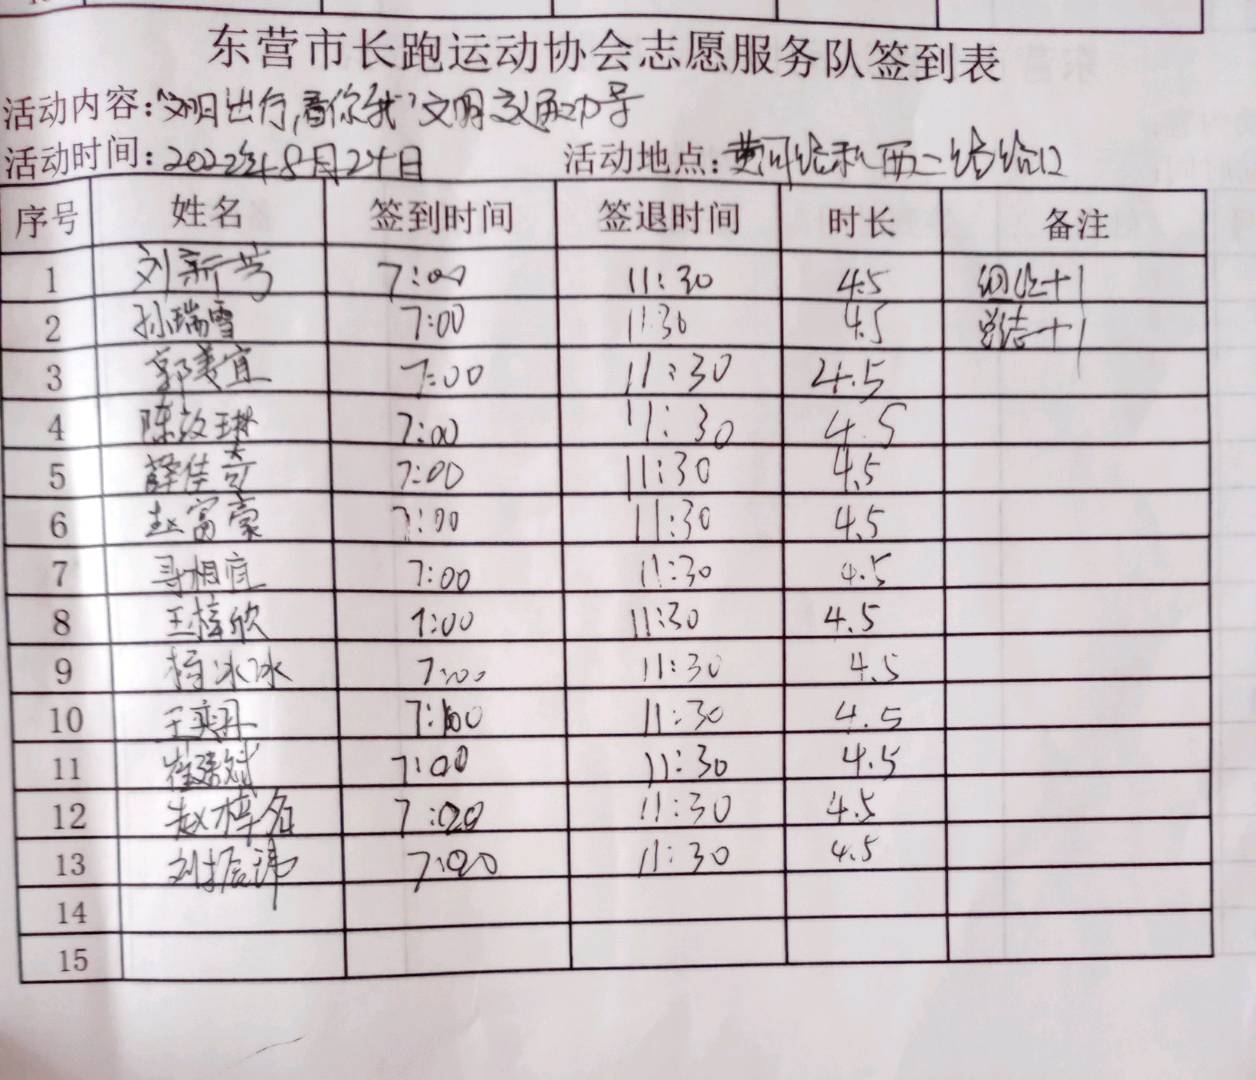 东营市长跑运动协会志愿服务队签到表
活动内容:“文明出行,看你我”文明交通劝导
活动时间:2022年8月24日 活动地点:黄河路和西二路路口
序号 姓名 签到时间 签退时间 时长 备注
1 刘新芳 7:00 11:30 4.5 组织+1
2 孙瑞雪 7:00 11:30 4.5 总结+1
3 郭美宜 7:00 11:30 4.5
4 陈玟琳 7:00 11:30 4.5
5 薛佳奇 7:00 11:30 4.5
6 赵富豪 7:00 11:30 4.5
7 寻相宜 7:00 11:30 4.5
8 王梓欣 7:00 11:30 4.5
9 杨冰冰 7:00 11:30 4.5
10 王奕丹 7:00 11:30 4.5
11 崔建斌 7:00 11:30 4.5
12 赵梓名 7:00 11:30 4.5
13 刘振玮 7:00 11:30 4.5
14
15